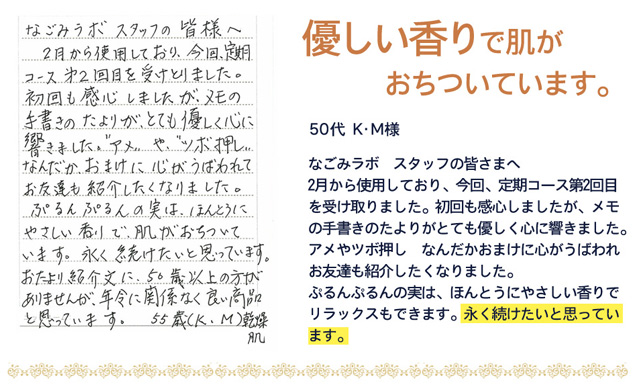 なごみラボ スタッフの 皆様へ
2月から使用しており、今回、定期
コース 第2回目を受けとりました。
初回も感心しましたが、メモの
手書きの たよりが、とても優しく心に
響きました。"アメ" や、"ツボ押し"
なんだか、おまけに 心がうばわれて
お友達も紹介したくなりました。
ぷるんぷるんの実は、ほんとうに
やさしい香りで、肌がおちついて
います。永く続けたいと思っています。
おたより紹介文に、50歳以上の方が
ありませんが、年令に関係なく良い商品
と思っています。 55歳(K・M)乾燥
肌
優しい香りで肌が
おちついています。
50代 K·M様
なごみラボ スタッフの皆さまへ
2月から使用しており、今回、定期コース第2回目
を受け取りました。初回も感心しましたが、メモ
の手書きのたよりがとても優しく心に響きました。
アメやツボ押し なんだかおまけに心がうばわれ
お友達も紹介したくなりました。
ぷるんぷるんの実は、ほんとうにやさしい香りで
リラックスもできます。永く続けたいと思ってい
ます。